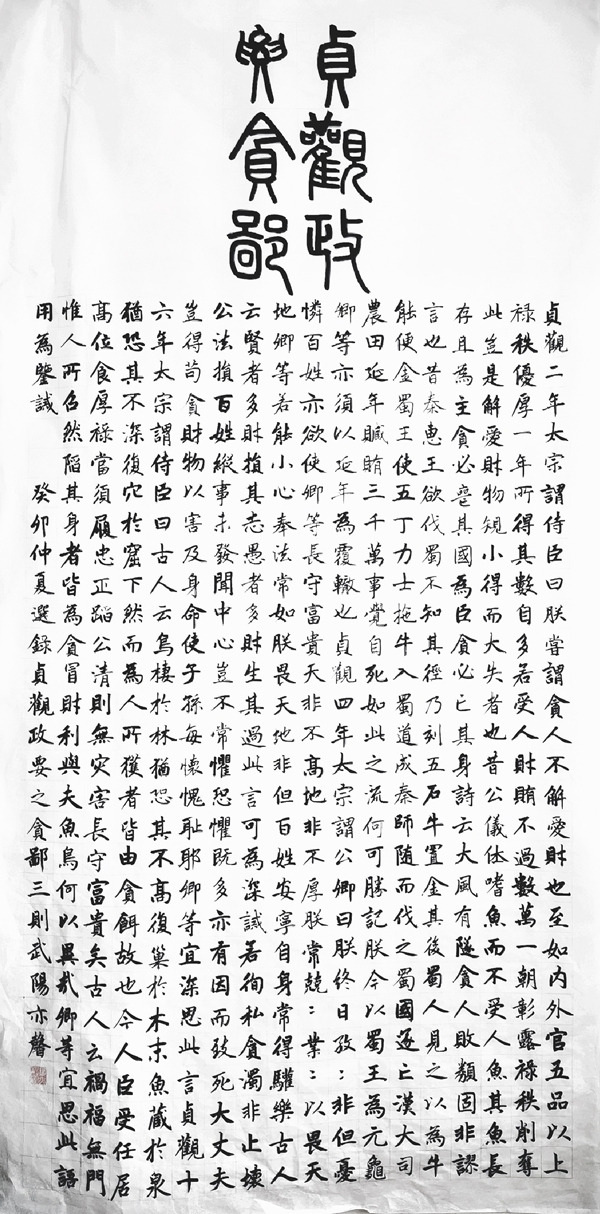 貞觀政
要貪鄙
貞觀二年太宗謂侍臣曰朕嘗謂貪人不解愛財也至如内外官五品以上
禄秩優厚一年所得其數自多若受人財賄不過數萬一朝彰露禄秩削奪
此豈是解愛財物規小得而大失者也昔公儀休嗜魚而不受人魚其魚長
存且為主貪必喪其國為臣貪必亡其身詩云大風有隧貪人敗類固非謬
言也昔秦惠王欲伐蜀不知其徑乃刻五石牛置金其後蜀人見之以為牛
能便金蜀王使五丁力士拖牛入蜀道成秦師随而伐之蜀國遂亡漢大司
農田延年贓賄三千萬事覺自死如此之流何可勝記朕今以蜀王為元龜
卿等亦須以延年為覆轍也貞觀四年太宗謂公卿曰朕終日孜:非但憂
憐百姓亦欲使卿等長守富貴天非不高地非不厚朕常兢:業:以畏天
地卿等若能小心奉法常如朕畏天地非但百姓安寧自身常得驩樂古人
云賢者多財損其志愚者多財生其過此言可為深誡若徇私貪濁非止壞
公法損百姓縱事未發聞中心豈不常懼恐懼既多亦有因而致死大丈夫
豈得苟貪財物以害及身命使子孫每懷愧恥耶卿等宜深思此言貞觀十
六年太宗謂侍臣曰古人云鳥棲於林猶恐其不高復巢於木末魚藏於泉
猶恐其不深復穴於窟下然而為人所獲者皆由貪餌故也今人臣受任居
高位食厚禄當須履忠正蹈公清則無災害長守富貴矣古人云禍福無門
惟人所召然陷其身者皆為貪冒財利與夫魚鳥何以異哉卿等宜思此語
用為鑒誡 癸卯仲夏選錄貞觀政要之貪鄙三則武陽亦馨